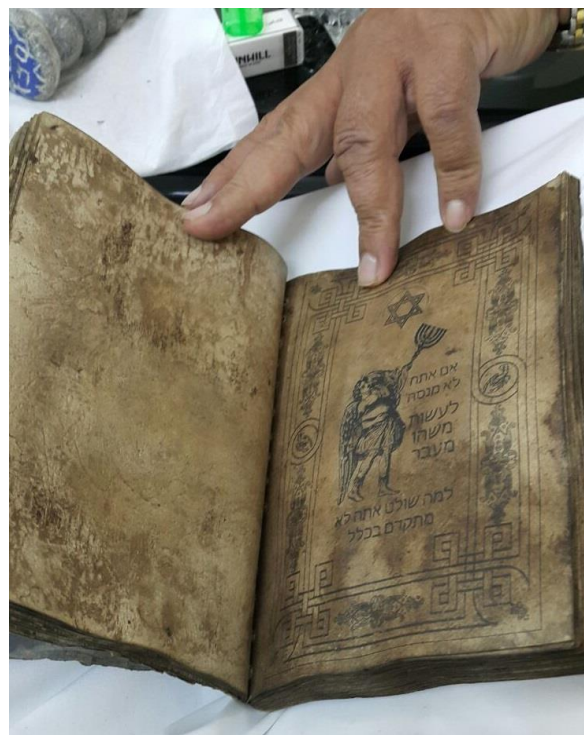 NHILL
אם אתה
לא מנסה
לעשות
משהו
מעבר
למה שולט אתה לא
מתקדם בכלל